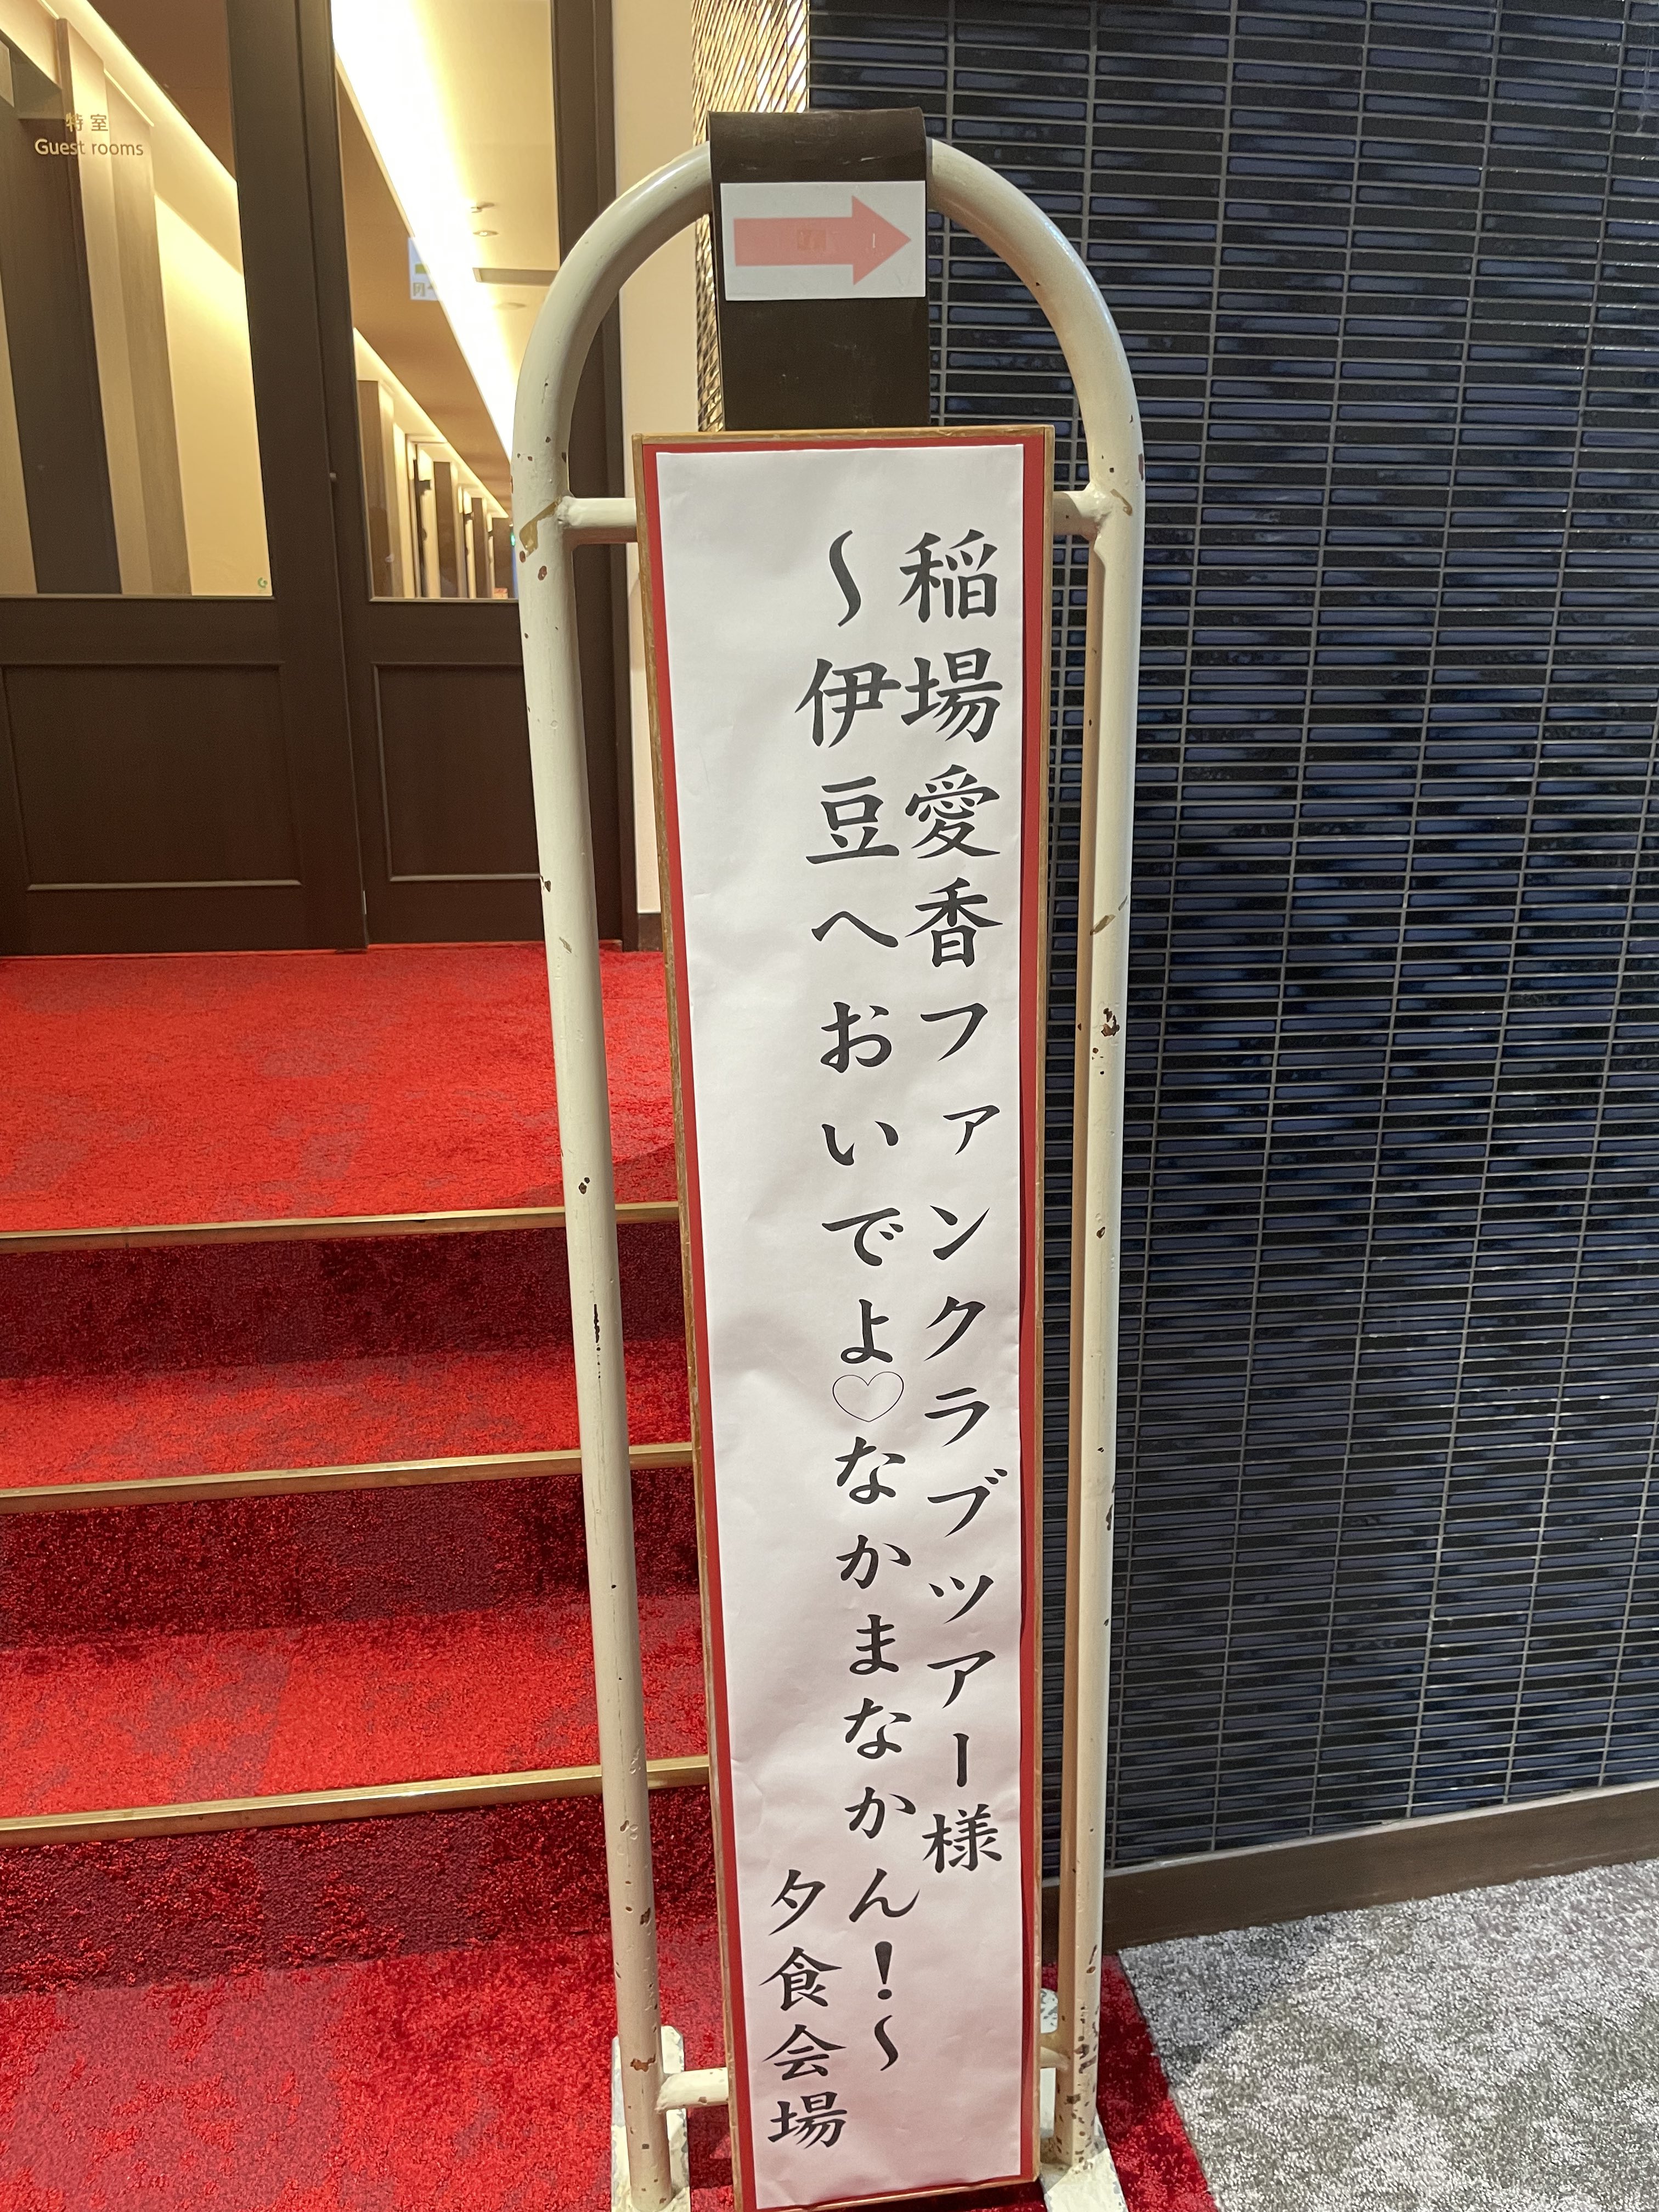 特室
Guest rooms
稲場愛香ファンクラブツアー様
～伊豆へおいでよ♡なかまなかん！～
夕食会場